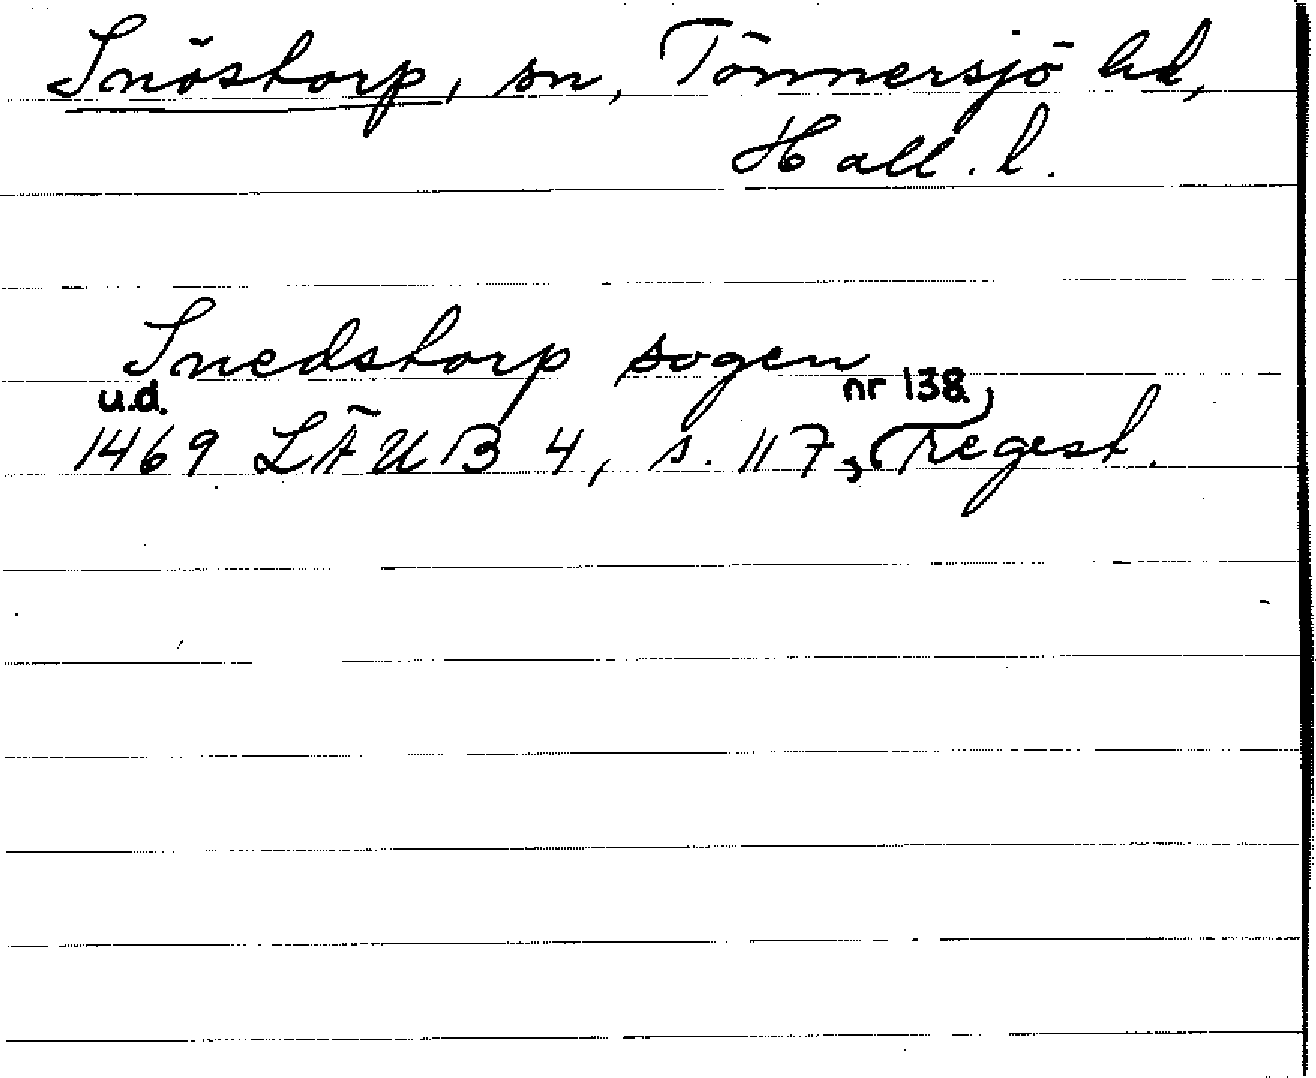 Snöstorp, sn, Tönnersjö hd,
Hall. l.
Snedstorp sogen
u.d. nr 138
1469 LÄUB 4, s. 117, regest.